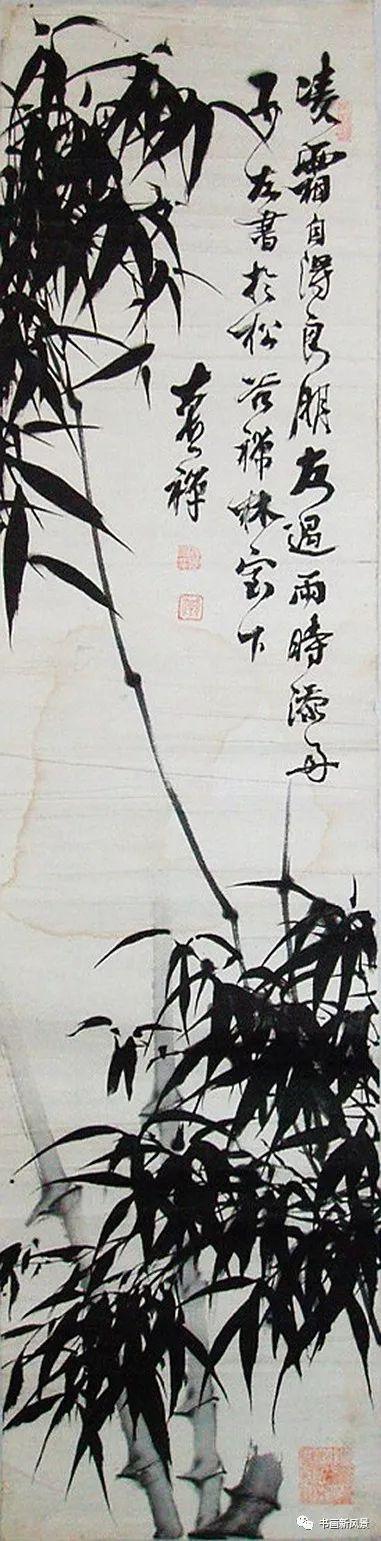 凌霜自得良朋友過雨時添
書於松谷禪林室下
禪
书画新风景